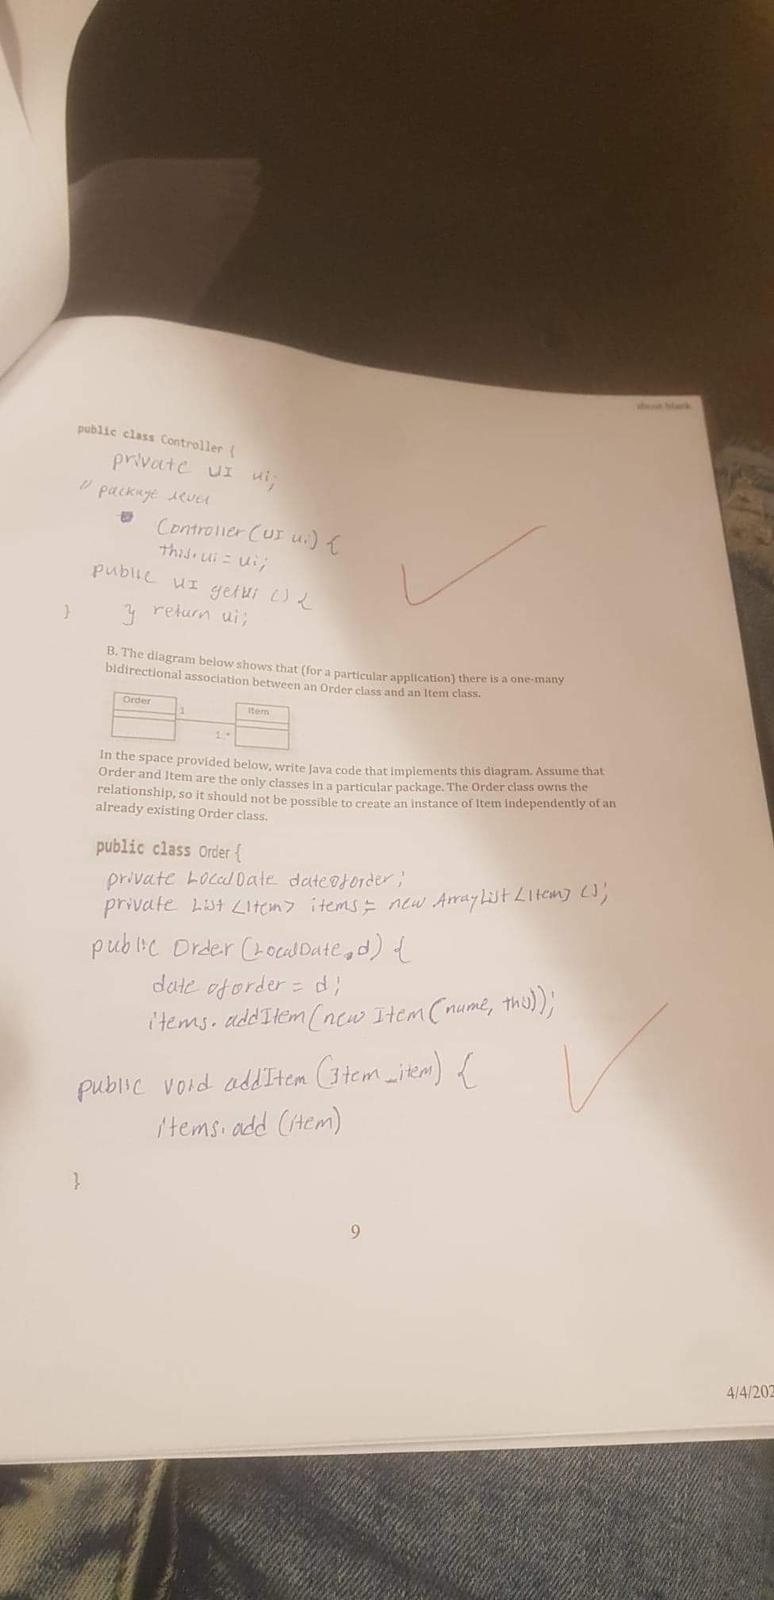 about:blank
public class Controller {
private UI ui;
// package level
Controller (UI ui) {
this.ui = ui;
public UI getUI () {
} return ui;
}
B. The diagram below shows that (for a particular application) there is a one-many
bidirectional association between an Order class and an Item class.
Order
1
Item
1..*
In the space provided below, write Java code that implements this diagram. Assume that
Order and Item are the only classes in a particular package. The Order class owns the
relationship, so it should not be possible to create an instance of Item independently of an
already existing Order class.
public class Order {
private LocalDate dateoforder;
private List <Item> items = new ArrayList <Item> ();
public Order (LocalDate d) {
date oforder = d;
items. addItem (new Item (name, this));
public void addItem (Item item) {
items. add (item)
}
9
4/4/202